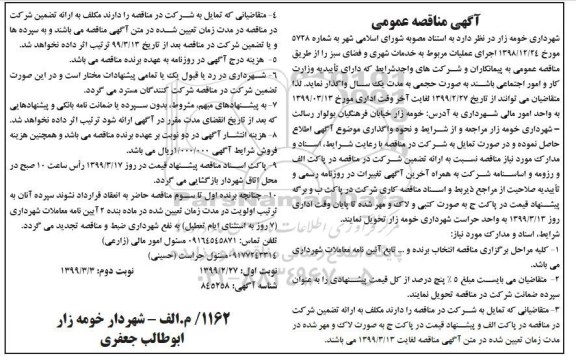 آگهی مناقصه عمومی
شهرداری خومه زار در نظر دارد به استناد مصوبه شورای اسلامی شهر به شماره ۵۷۲۸
مورخ ۱۳۹۸/۱۲/۲۴ اجرای عملیات مربوط به خدمات شهری و فضای سبز را از طریق
مناقصه عمومی به پیمانکاران و شرکت های واجدشرایط که دارای تاییدیه وزارت
کار و امور اجتماعی باشند به صورت حجمی به مدت یک سال واگذار نماید. لذا
متقاضیان می توانند از تاریخ ۱۳۹۹/۲/۲۷ لغایت آخر وقت اداری مورخ ۱۳۹۹/۰۳/۱۳
به واحد امور مالی شهرداری به آدرس: خومه زار خیابان فرهنگیان بولوار رسالت
– شهرداری خومه زار مراجعه و از شرایط و نحوه واگذاری موضوع آگهی اطلاع
حاصل نموده و در صورت تمایل به شرکت در مناقصه با رعایت شرایط، اسناد و
مدارک مورد نیاز مناقصه نسبت به ارائه تضمین شرکت در مناقصه در پاکت الف
و رزومه و اساسنامه شرکت به همراه آخرین آگهی تغییرات در روزنامه رسمی و
تأییدیه صلاحیت از مراجع ذیربط و اسناد مناقصه کاری شرکت در پاکت ب و برگه
پیشنهاد قیمت در پاکت ج به صورت کتبی و لاک و مهر شده تا پایان وقت اداری
روز ۱۳۹۹/۳/۱۳ به واحد حراست شهرداری خومه زار تحویل نمایند.
شرایط، اسناد و مدارک مورد نیاز:
۱- کلیه مراحل برگزاری مناقصه انتخاب برنده و ... تابع آئین نامه معاملات شهرداری
می باشد.
۲- متقاضیان می بایست مبلغ ۵ ٪ پنج درصد از کل قیمت پیشنهادی را به عنوان
سپرده ضمانت شرکت در مناقصه تحویل نمایند.
۳- متقاضیانی که تمایل به شرکت در مناقصه را دارند مکلف به ارائه تضمین شرکت
در مناقصه در پاکت الف و پیشنهاد قیمت در پاکت ج به صورت لاک و مهر شده در
مدت زمان تعیین شده در متن آگهی مناقصه لغایت ۱۳۹۹/۳/۱۳ می باشند.
۴- متقاضیانی که تمایل به شرکت در مناقصه را دارند مکلف به ارائه تضمین شرکت
در مناقصه در مدت زمان تعیین شده در متن آگهی مناقصه می باشند و به سپرده ها
و یا تضمین شرکت در مناقصه بعد از تاریخ ۹۹/۳/۱۳ ترتیب اثر داده نخواهد شد.
۵- هزینه درج آگهی در روزنامه به عهده برنده مناقصه می باشد.
۶- شهرداری در رد یا قبول یک یا تمامی پیشنهادات مختار است و در این صورت
تضمین شرکت در مناقصه شرکت کنندگان مسترد می گردد.
۷- به پیشنهادهای مبهم، مشروط، بدون سپرده یا ضمانت نامه بانکی و پیشنهادهایی
که بعد از تاریخ انقضای مدت مقرر در آگهی ارائه شود ترتیب اثر داده نخواهد شد.
۸- هزینه انتشار آگهی در دو نوبت بر عهده برنده مناقصه می باشد و همچنین هزینه
فروش شرایط آگهی ۱/۰۰۰/۰۰۰ریال می باشد.
۹- پاکت اسناد مناقصه پیشنهاد قیمت در روز ۱۳۹۹/۳/۱۷ رأس ساعت ۱۰ صبح در
محل اتاق شهردار بازگشایی می گردد.
۱۰- چنانچه برنده اول تا سوم مناقصه حاضر به انعقاد قرارداد نشوند سپرده آنان به
ترتیب اولویت در مدت زمان تعیین شده در ماده بنده ۲ آیین نامه معاملات شهرداری
(۷روز به استثنای ایام تعطیل) به نفع شهرداری ضبط و مناقصه تجدید می گردد.
تلفن تماس: ۰۹۱۶۴۵۴۵۸۷۱ مسئول امور مالی (زارعی)
۰۹۱۷۷۲۴۳۳۱۴ مسئول حراست (حسینی)
نوبت اول: ۱۳۹۹/۲/۲۷ نوبت دوم: ۱۳۹۹/۳/۳
شناسه آگهی: ۸۴۵۲۵۸
۱۱۶۲/ م.الف – شهردار خومه زار
ابوطالب جعفری